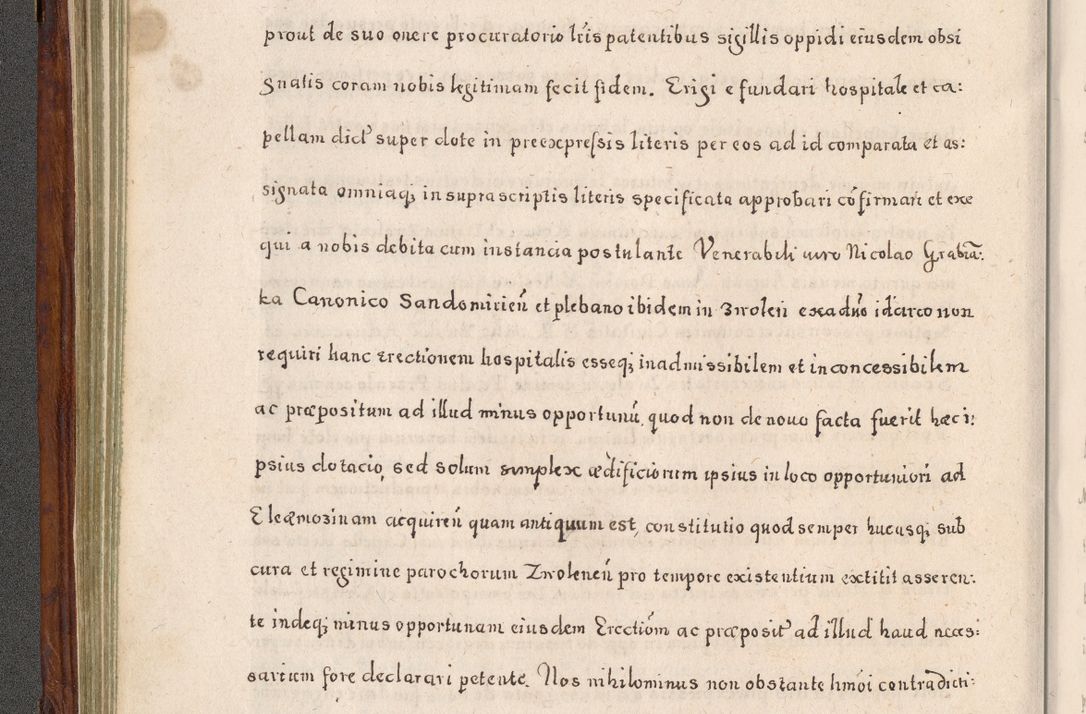 prout de suo onere procuratorio lr̃is patentibus sigillis oppidi eiusdem obsi
gnatis coram nobis legitimam fecit fidem. Erigi e fundari hospitale et ca:
pellam dict' super dote in preexpreſsis literis per eos ad id comparata et as:
signata omniaq; in suprascriptis literis specificata approbari cófirmari et exe
qui a nobis debita cum instancia postulante Venerabili viro Nicolao Grabia̅:
ka Canonico Sandomirień et plebano ibidem in Zwoleń ex aduo idcirco non
requiri hanc erectionem hospitalis esseq; inadmissibilem et inconcessibilem
ac præpositum ad illud minus opportunú, quod non de nouo facta fuerit hæc i:
psius dotacio, sed solum simplex ædificiorum ipsius in loco opportuniori ad
Eleæmozinam acquireń quam antiquum est, constitutio quod semper hucusq; sub
cura et regimine parochorum Zwoleneń pro tempore existentium extitit asseren:
te indeq; minus opportunam eiusdem Erectióm ac præposit' ad illud haud neces:
sarium fore declarari petente. Nos nihilominus non obstante hmói contradicti: